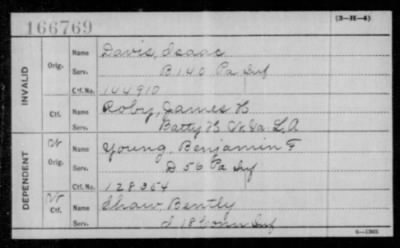 166769
(3-H-4)
INVALID
Orig.
Name Davis, Isaac
Serv. B 140 Pa Inf
Ctf. No. 144910
Ctf.
Name Roby, James H
Serv. Batty H W.Va. L.A
DEPENDENT
Orig.
Name Young, Benjamin F
Serv. D 56 Pa Inf
Ctf. No. 128354
Ctf.
Name Shaw, Bently
Serv. I 18 Conn Inf
6-1363